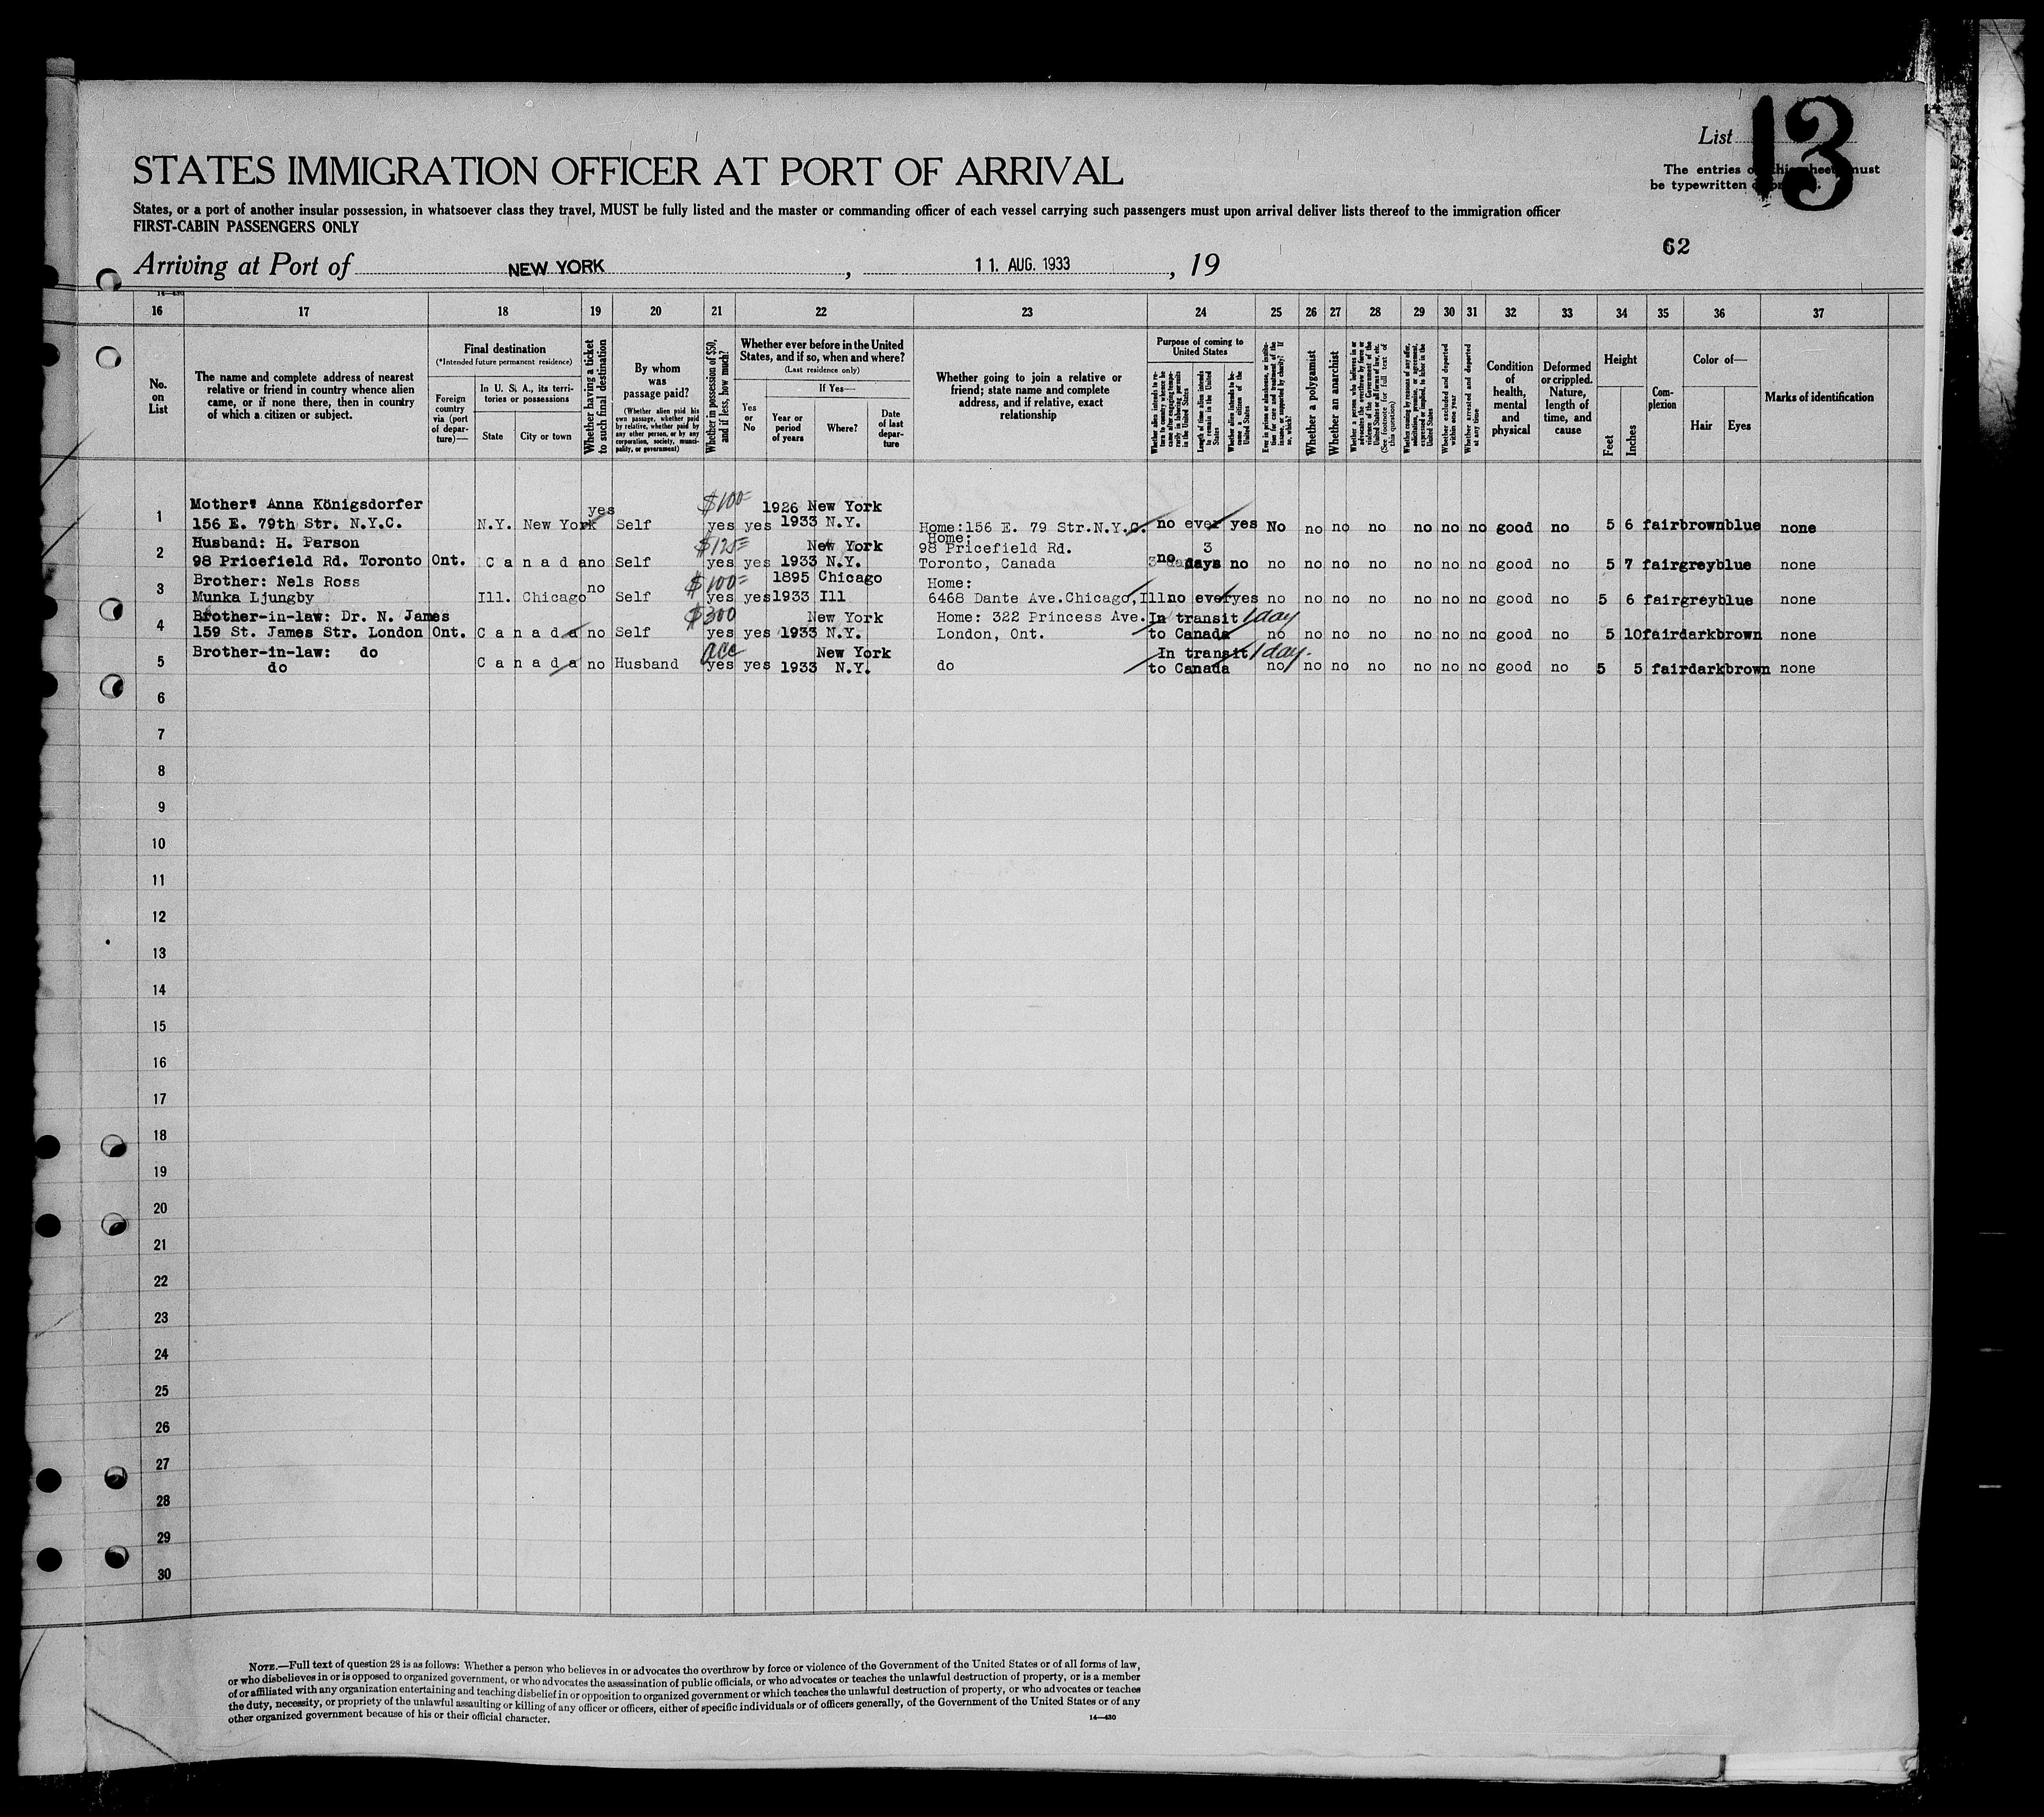 List 13
The entries must
be typewritten
STATES IMMIGRATION OFFICER AT PORT OF ARRIVAL
States, or a port of another insular possession, in whatsoever class they travel, MUST be fully listed and the master or commanding officer of each vessel carrying such passengers must upon arrival deliver lists thereof to the immigration officer
FIRST-CABIN PASSENGERS ONLY
62
Arriving at Port of NEW YORK, 11. AUG. 1933, 19
14—430
16 17 18 19 20 21 22 23 24 25 26 27 28 29 30 31 32 33 34 35 36 37
No. on List
The name and complete address of nearest relative or friend in country whence alien came, or if none there, then in country of which a citizen or subject.
Final destination
(*Intended future permanent residence)
Foreign country via (port of departure)—
In U. S. A., its territories or possessions
State
City or town
Whether having a ticket to such final destination
By whom was passage paid?
(Whether alien paid his own passage, whether paid by relative, whether paid by any other person, or by any corporation, society, municipality, or government)
Whether in possession of $50, and if less, how much?
Whether ever before in the United States, and if so, when and where?
(Last residence only)
Yes or No
If Yes—
Year or period of years
Where?
Date of last departure
Whether going to join a relative or friend; state name and complete address, and if relative, exact relationship
Purpose of coming to United States
Length of time alien intends to remain in the United States
Whether alien intends to become a citizen of the United States
Whether a polygamist
Whether an anarchist
Whether excluded and deported within one year
Whether arrested and deported at any time
Condition of health, mental and physical
Deformed or crippled. Nature, length of time, and cause
Height
Feet
Inches
Complexion
Color of—
Hair
Eyes
Marks of identification
Mother: Anna Königsdorfer yes $100= 1926 New York
1 156 E. 79th Str. N.Y.C. N.Y. New York Self yes yes 1933 N.Y. Home:156 E. 79 Str.N.Y.C. no ever yes No no no no no no no good no 5 6 fair brown blue none
Husband: H. Parson $125= New York Home: 98 Pricefield Rd. 3
2 98 Pricefield Rd. Toronto Ont. Canada no Self yes yes 1933 N.Y. Toronto, Canada no days no no no no no no no no good no 5 7 fair grey blue none
Brother: Nels Ross no $100= 1895 Chicago Home:
3 Munka Ljungby Ill. Chicago Self yes yes 1933 Ill 6468 Dante Ave.Chicago,Ill no ever yes no no no no no no no good no 5 6 fair grey blue none
Brother-in-law: Dr. N. James $300 New York Home: 322 Princess Ave. In transit 1 day
4 159 St. James Str. London Ont. Canada no Self yes yes 1933 N.Y. London, Ont. to Canada no no no no no no no good no 5 10 fair dark brown none
Brother-in-law: do acc New York In transit 1 day.
5 do Canada no Husband yes yes 1933 N.Y. do to Canada no no no no no no no good no 5 5 fair dark brown none
6
7
8
9
10
11
12
13
14
15
16
17
18
19
20
21
22
23
24
25
26
27
28
29
30
NOTE.—Full text of question 28 is as follows: Whether a person who believes in or advocates the overthrow by force or violence of the Government of the United States or of all forms of law,
or who disbelieves in or is opposed to organized government, or who advocates the assassination of public officials, or who advocates or teaches the unlawful destruction of property, or is a member
of or affiliated with any organization entertaining and teaching disbelief in or opposition to organized government or which teaches the unlawful destruction of property, or who advocates or teaches
the duty, necessity, or propriety of the unlawful assaulting or killing of any officer or officers, either of specific individuals or of officers generally, of the Government of the United States or of any
other organized government because of his or their official character.
14—430